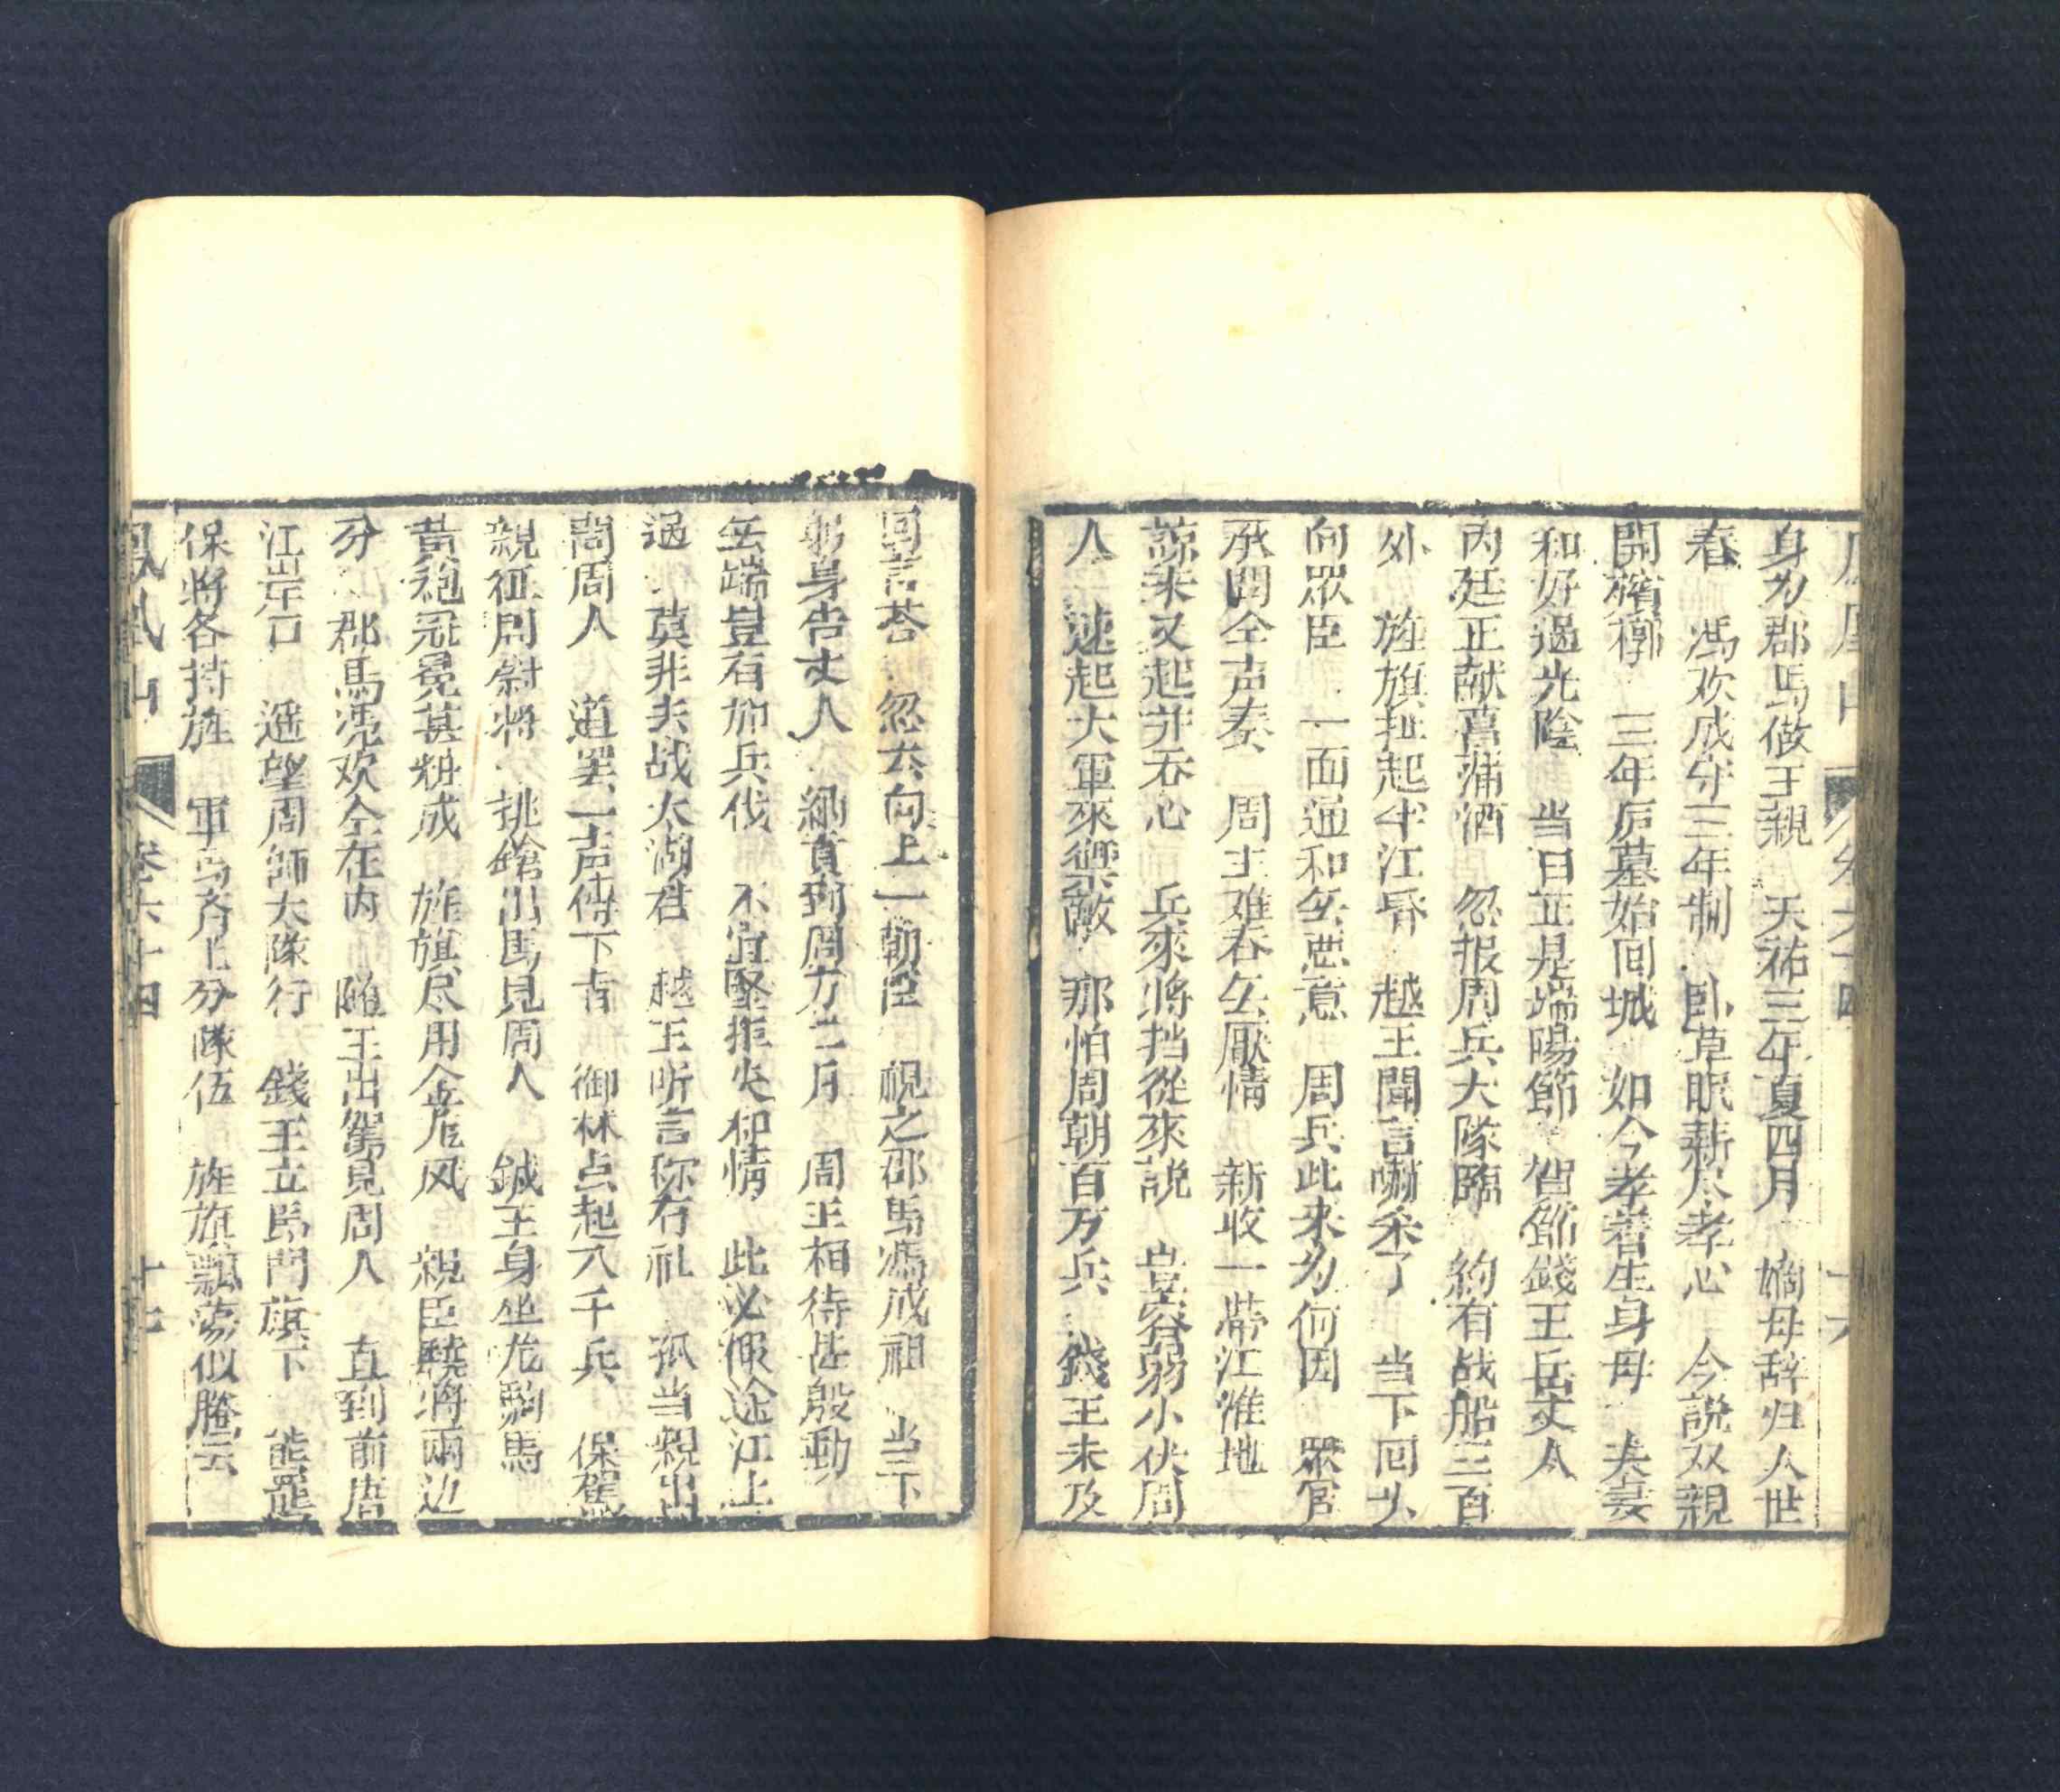 身為郡馬做王親　天祐三年夏四月　嫡母辞归人世
春　馮欢成守三年制　卧草眠薪尽孝心　今説双親
開殯槨　三年后墓始回城　如今孝着生身母　夫妻
和好過光陰　当日正是端陽節　智節錢王岳丈人
内廷正献菖蒲酒　忽报周兵大隊臨　約有战船三百
外　旌旗扯起半江昏　越王聞言嚇呆了　当下回头
向眾臣　一面通和無恶意　周兵此来为何因　眾官
承問全声奏　周主难吞無厭情　新收一帶江淮地
諒来又起并吞心　兵來將挡從來説　豈容弱小伏周
人　速起大軍來禦敵　那怕周朝百万兵　錢王未及
回言荅　忽去向上一朝臣　視之郡馬馮成祖　当下
躬身告丈人　納貢到周方二月　周王相待甚殷勤
無端豈有加兵伐　不宜堅拒失和情　此必假途江上
過　莫非去战太湖君　越王听言称有礼　孤当親出
問周人　道罢一声传下旨　御林点起八千兵　保駕
親征周尉将　挑鎗出馬見周人　錢王身坐龙駒馬
黃袍冠冕甚粧成　旌旗尽用金龙风　親臣驍將兩边
分　郡馬馮欢全在内　隨王出駕見周人　直到前唐
江岸口　遥望周師大隊行　錢王立馬門旗下　能
保將各持旌　軍马齐上分隊伍　旌旗飄蕩似騰云
鳳凰山　卷六十四　十七